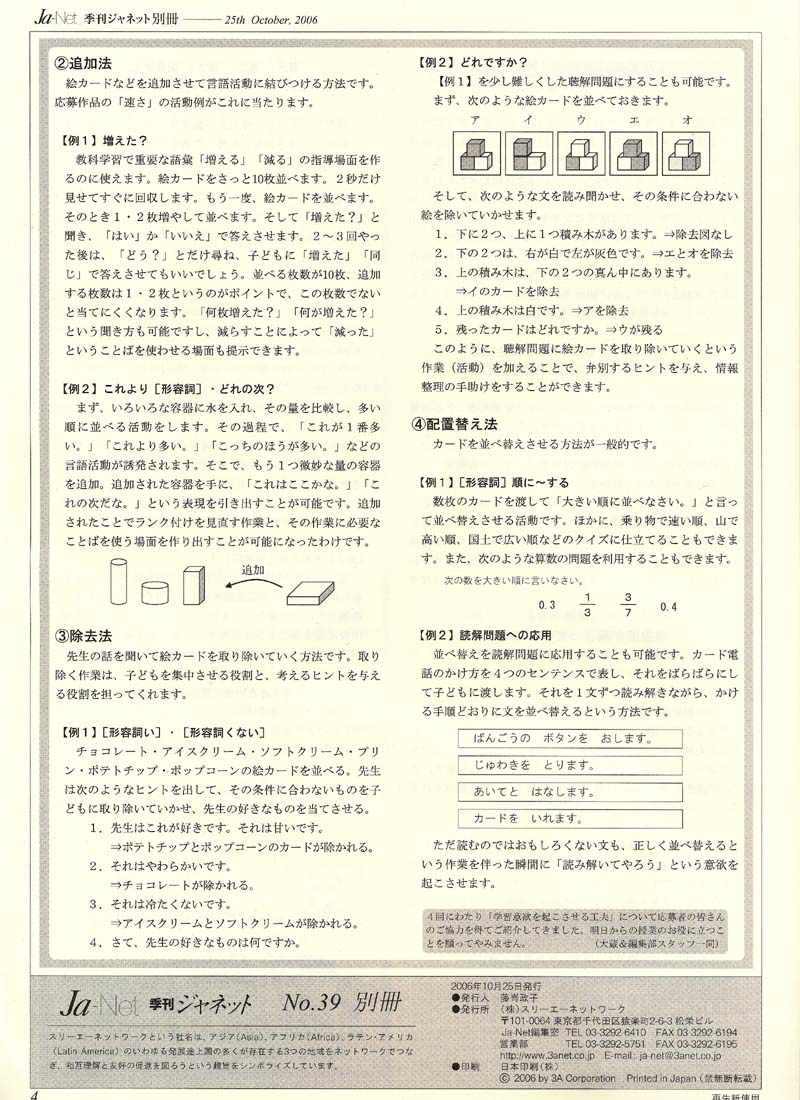 Ja-Net 季刊ジャネット別冊 —— 25th October, 2006
②追加法
絵カードなどを追加させて言語活動に結びつける方法です。
応募作品の「速さ」の活動例がこれに当たります。
【例１】増えた？
教科学習で重要な語彙「増える」「減る」の指導場面を作
るのに使えます。絵カードをさっと10枚並べます。２秒だけ
見せてすぐに回収します。もう一度、絵カードを並べます。
そのとき１・２枚増やして並べます。そして「増えた？」と
聞き、「はい」か「いいえ」で答えさせます。２～３回やっ
た後は、「どう？」とだけ尋ね、子どもに「増えた」「同
じ」で答えさせてもいいでしょう。並べる枚数が10枚、追加
する枚数は１・２枚というのがポイントで、この枚数でない
と当てにくくなります。「何枚増えた？」「何が増えた？」
という聞き方も可能ですし、減らすことによって「減った」
ということばを使わせる場面も提示できます。
【例２】これより［形容詞］・どれの次？
まず、いろいろな容器に水を入れ、その量を比較し、多い
順に並べる活動をします。その過程で、「これが１番多
い。」「これより多い。」「こっちのほうが多い。」などの
言語活動が誘発されます。そこで、もう１つ微妙な量の容器
を追加。追加された容器を手に、「これはここかな。」「こ
れの次だな。」という表現を引き出すことが可能です。追加
されたことでランク付けを見直す作業と、その作業に必要な
ことばを使う場面を作り出すことが可能になったわけです。
追加
③除去法
先生の話を聞いて絵カードを取り除いていく方法です。取り
除く作業は、子どもを集中させる役割と、考えるヒントを与え
る役割を担ってくれます。
【例１】［形容詞い］・［形容詞くない］
チョコレート・アイスクリーム・ソフトクリーム・プリ
ン・ポテトチップ・ポップコーンの絵カードを並べる。先生
は次のようなヒントを出して、その条件に合わないものを子
どもに取り除いていかせ、先生の好きなものを当てさせる。
１．先生はこれが好きです。それは甘いです。
⇒ポテトチップとポップコーンのカードが除かれる。
２．それはやわらかいです。
⇒チョコレートが除かれる。
３．それは冷たくないです。
⇒アイスクリームとソフトクリームが除かれる。
４．さて、先生の好きなものは何ですか。
【例２】どれですか？
【例１】を少し難しくした聴解問題にすることも可能です。
まず、次のような絵カードを並べておきます。
ア イ ウ エ オ
そして、次のような文を読み聞かせ、その条件に合わない
絵を除いていかせます。
１．下に２つ、上に１つ積み木があります。⇒除去図なし
２．下の２つは、右が白で左が灰色です。⇒エとオを除去
３．上の積み木は、下の２つの真ん中にあります。
⇒イのカードを除去
４．上の積み木は白です。⇒アを除去
５．残ったカードはどれですか。⇒ウが残る
このように、聴解問題に絵カードを取り除いていくという
作業（活動）を加えることで、弁別するヒントを与え、情報
整理の手助けをすることができます。
④配置替え法
カードを並べ替えさせる方法が一般的です。
【例１】［形容詞］順に～する
数枚のカードを渡して「大きい順に並べなさい。」と言っ
て並べ替えさせる活動です。ほかに、乗り物で速い順、山で
高い順、国土で広い順などのクイズに仕立てることもできま
す。また、次のような算数の問題を利用することもできます。
次の数を大きい順に言いなさい。
0.3 1/3 3/7 0.4
【例２】読解問題への応用
並べ替えを読解問題に応用することも可能です。カード電
話のかけ方を４つのセンテンスで表し、それをばらばらにし
て子どもに渡します。それを１文ずつ読み解きながら、かけ
る手順どおりに文を並べ替えるという方法です。
ばんごうの ボタンを おします。
じゅわきを とります。
あいてと はなします。
カードを いれます。
ただ読むのではおもしろくない文も、正しく並べ替えると
いう作業を伴った瞬間に「読み解いてやろう」という意欲を
起こさせます。
４回にわたり「学習意欲を起こさせる工夫」について応募者の皆さん
のご協力を得てご紹介してきました。明日からの授業のお役に立つこ
とを願ってやみません。 （大蔵＆編集部スタッフ一同）
Ja-Net 季刊 ジャネット No.39 別冊
スリーエーネットワークという社名は、アジア(Asia)、アフリカ(Africa)、ラテン・アメリカ
(Latin America) のいわゆる発展途上国の多くが存在する3つの地域をネットワークでつな
ぎ、相互理解と友好の促進を図ろうという趣旨をシンボライズしています。
2006年10月25日発行
●発行人 藤嵜政子
●発行所 （株）スリーエーネットワーク
〒101-0064 東京都千代田区猿楽町2-6-3 松栄ビル
Ja-Net編集室 TEL 03-3292-6410 FAX 03-3292-6194
営業部 TEL 03-3292-5751 FAX 03-3292-6195
http://www.3anet.co.jp E-mail: ja-net@3anet.co.jp
●印刷 日本印刷（株）
© 2006 by 3A Corporation Printed in Japan （禁無断転載）
4
再生紙使用